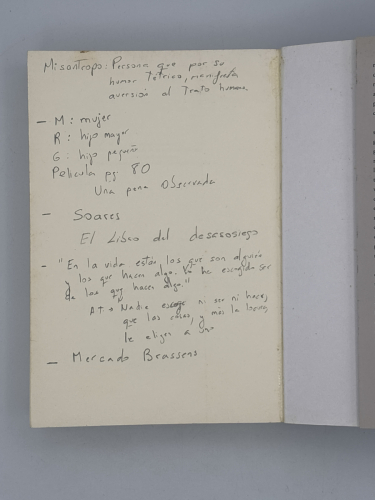 Misantropo: Persona que por su
humor Tétrico, manifiesta
aversión al Trato humano
- M: mujer
R: hijo mayor
G: hijo pequeño
Película pg 80
Una pena Observada
- Soares
El Libro del desasosiego
- "En la vida están los que son alguien
y los que hacen algo. Yo he escogido ser
de los que hacen algo."
Nadie escoge ni ser ni hacer,
que las cosas, y más la
le eligen a uno
- Mercado Brassens